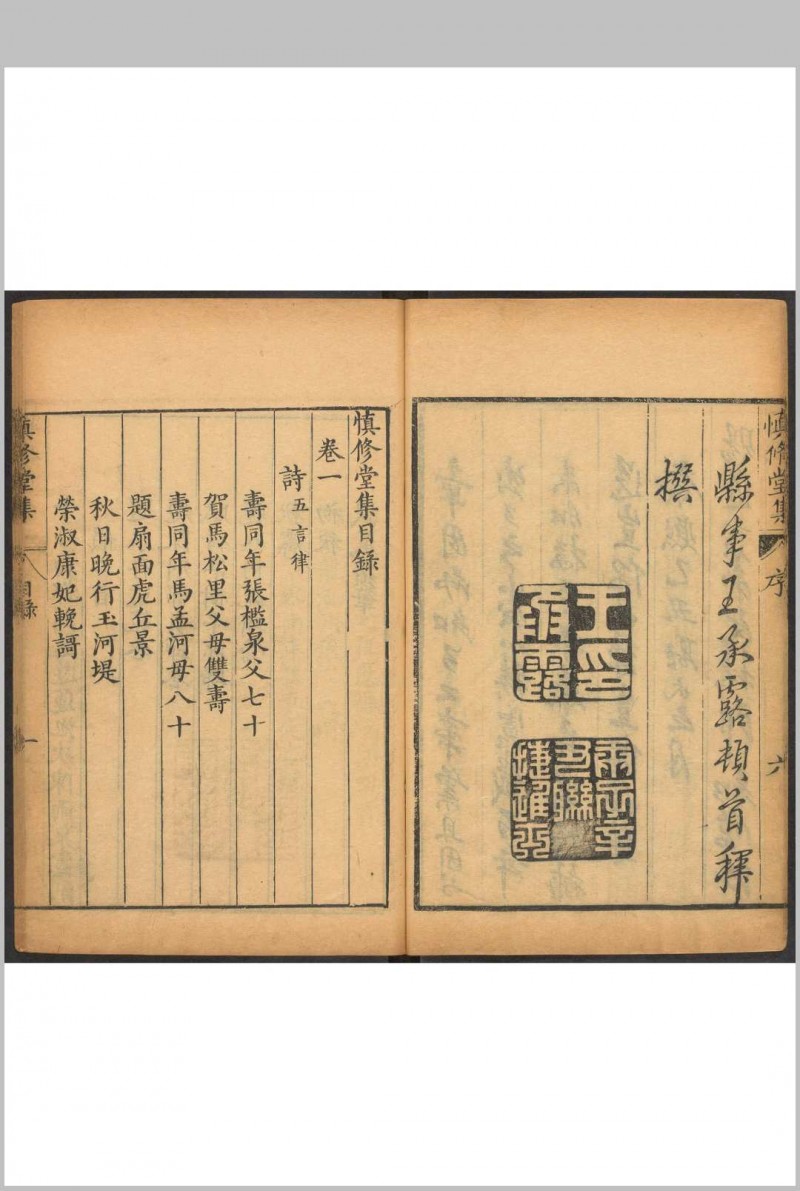 慎修堂集 序 六
縣事王承露頓首釋
撰
王印承露
慎修堂集目錄
卷一
詩五言律
壽同年張檻泉父七十
賀馬松里父母雙壽
壽同年馬孟河母八十
題扇面虎丘景
秋日晚行玉河堤
榮淑康妃輓謌
慎修堂集 目錄 一